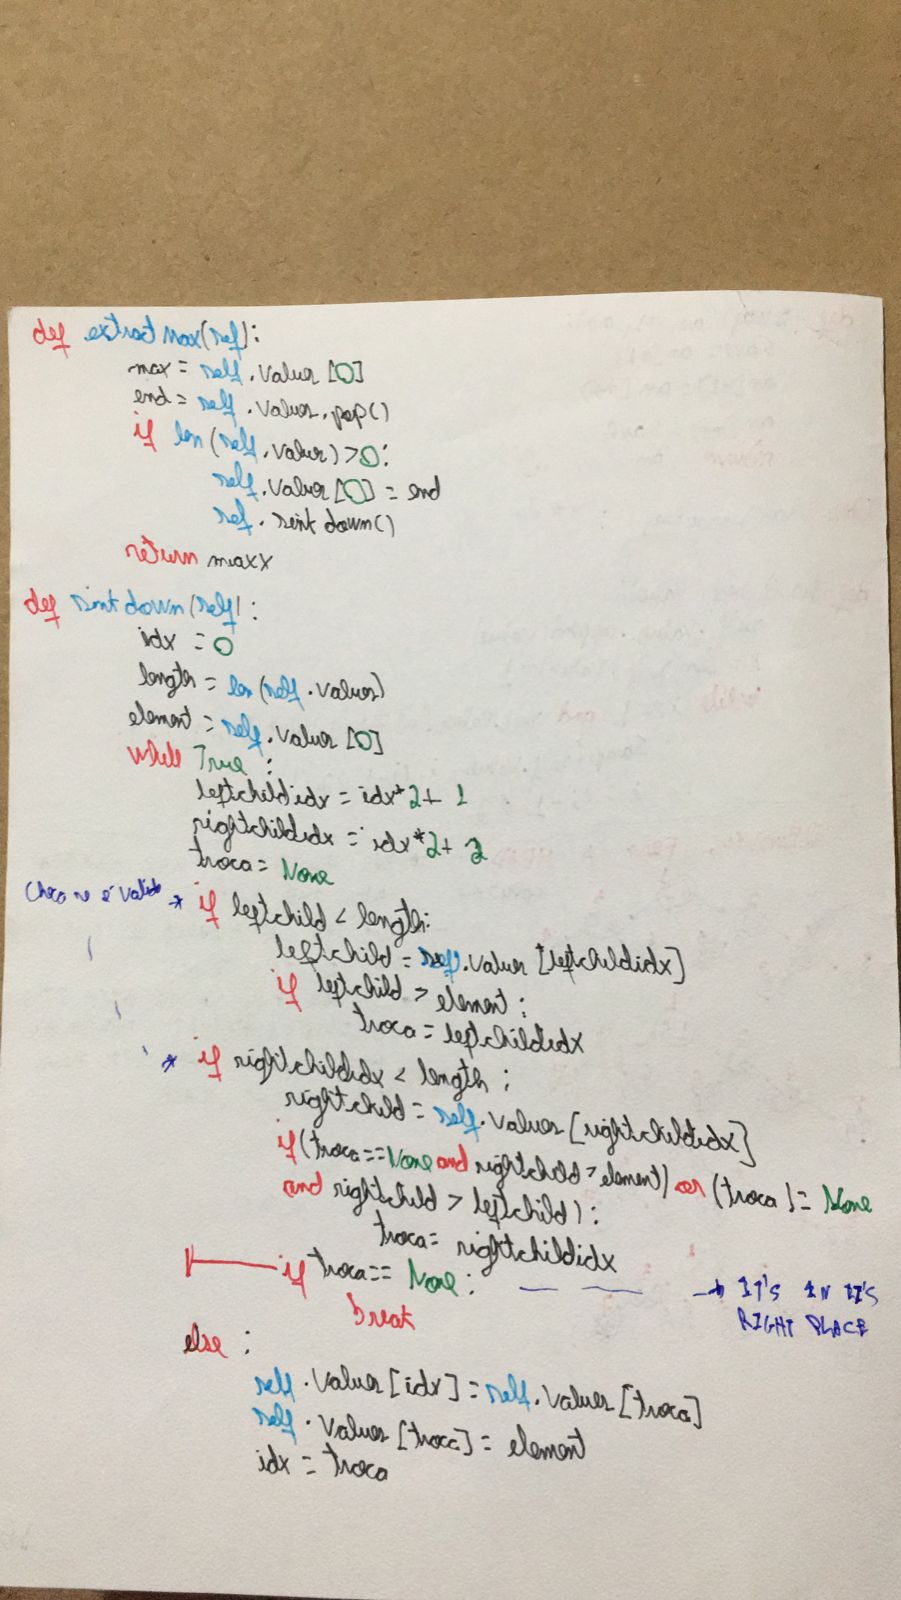 def extractMax(self):
max = self.values[0]
end = self.values.pop()
if len(self.values)>0:
self.values[0] = end
self.sinkdown()
return maxx
def sinkdown(self):
idx = 0
length = len(self.values)
element = self.values[0]
while True:
leftchildidx = idx*2+ 1
rightchildidx = idx*2+ 2
troca = None
Checa se é valido * if leftchild < length:
leftchild = self.values[leftchildidx]
if leftchild > element:
troca = leftchildidx
* if rightchildidx < length:
rightchild = self.values[rightchildidx]
if(troca==None and rightchild > element) or (troca != None
and rightchild > leftchild):
troca = rightchildidx
if troca == None: → IT'S IN IT'S
RIGHT PLACE
break
else:
self.values[idx] = self.values[troca]
self.values[troca] = element
idx = troca